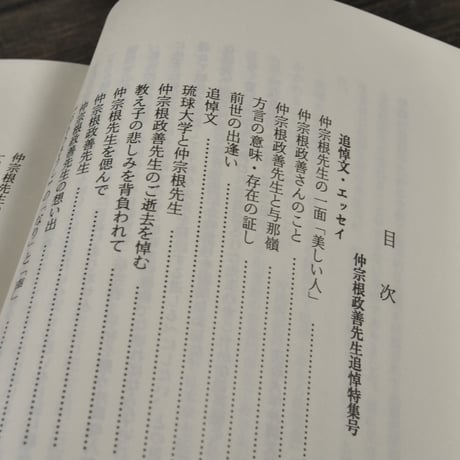 目次
仲宗根政善先生追悼特集号
追悼文・エッセイ
仲宗根先生の一面「美しい人」
仲宗根政善さんのこと
仲宗根政善先生と与那嶺
方言の意味・存在の証し
前世の出逢い
追悼文
琉球大学と仲宗根先生
仲宗根政善先生のご逝去を悼む
教え子の悲しみを背負われて
仲宗根先生を偲んで
仲宗根政善先生
仲宗根政善先生の想い出